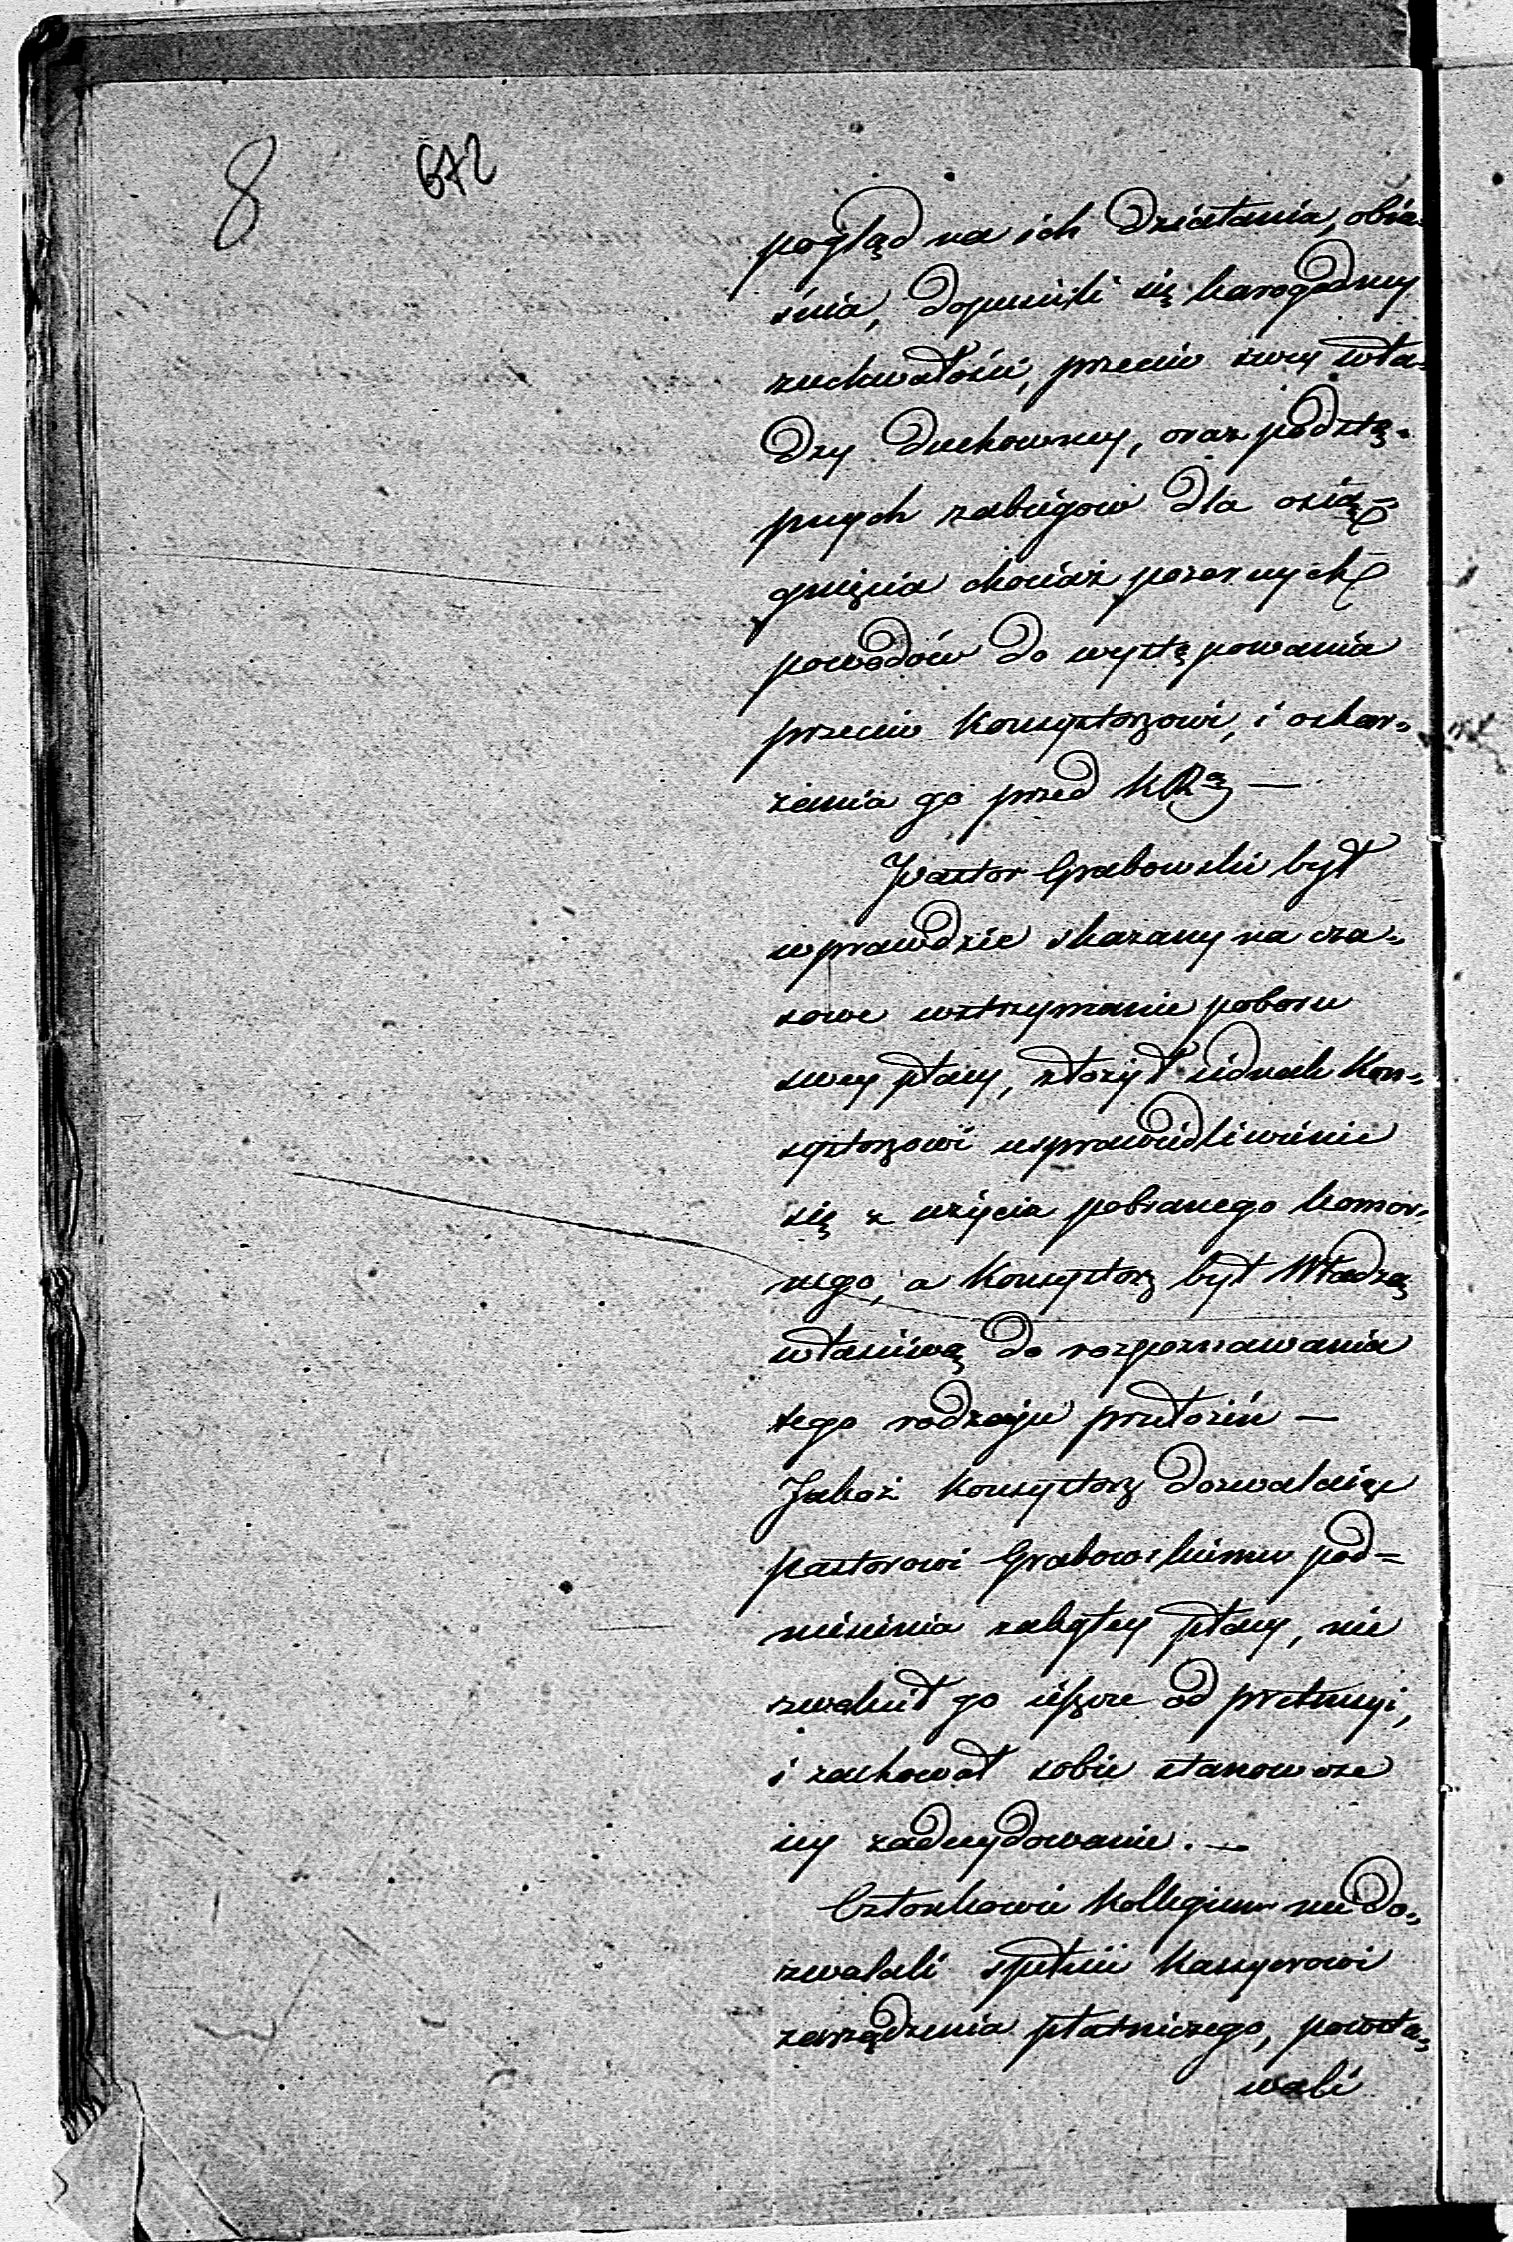 8 672
pogląd na ich działania, obia=
śnia, dopuścili się karogodney
zuchwałości, przeciw swey wła=
dzy duchowney, oraz podstę=
pnych zabiegow dla osią=
gnięcia chociaż pozornych
powodów do występowania
przeciw Konsystorzowi, i oskar=
żenia go przed KRą —
Pastor Grabowski był
wprawdzie skazany na cza=
sowe wstrzymanie poboru
swey płacy, złożył iednak Kon=
systorzowi usprawiedliwienie
się z użycia pobranego komor=
nego, a Konsystorz był Władzą
właściwą do rozpoznawania
tego rodzaju przełożeń —
Jakoż Konsystorz dozwalaiąc
Pastorowi Grabowskiemu pod=
niesienia zaległey płacy, nie
zwolnił go ieszcze od pretensyi,
i zachował sobie stanowcze
iey zadecydowanie. —
Członkowie Kollegium nie do=
zwalali spełnić Kassyerowi
zarządzenia płatniczego, powsta=
wali